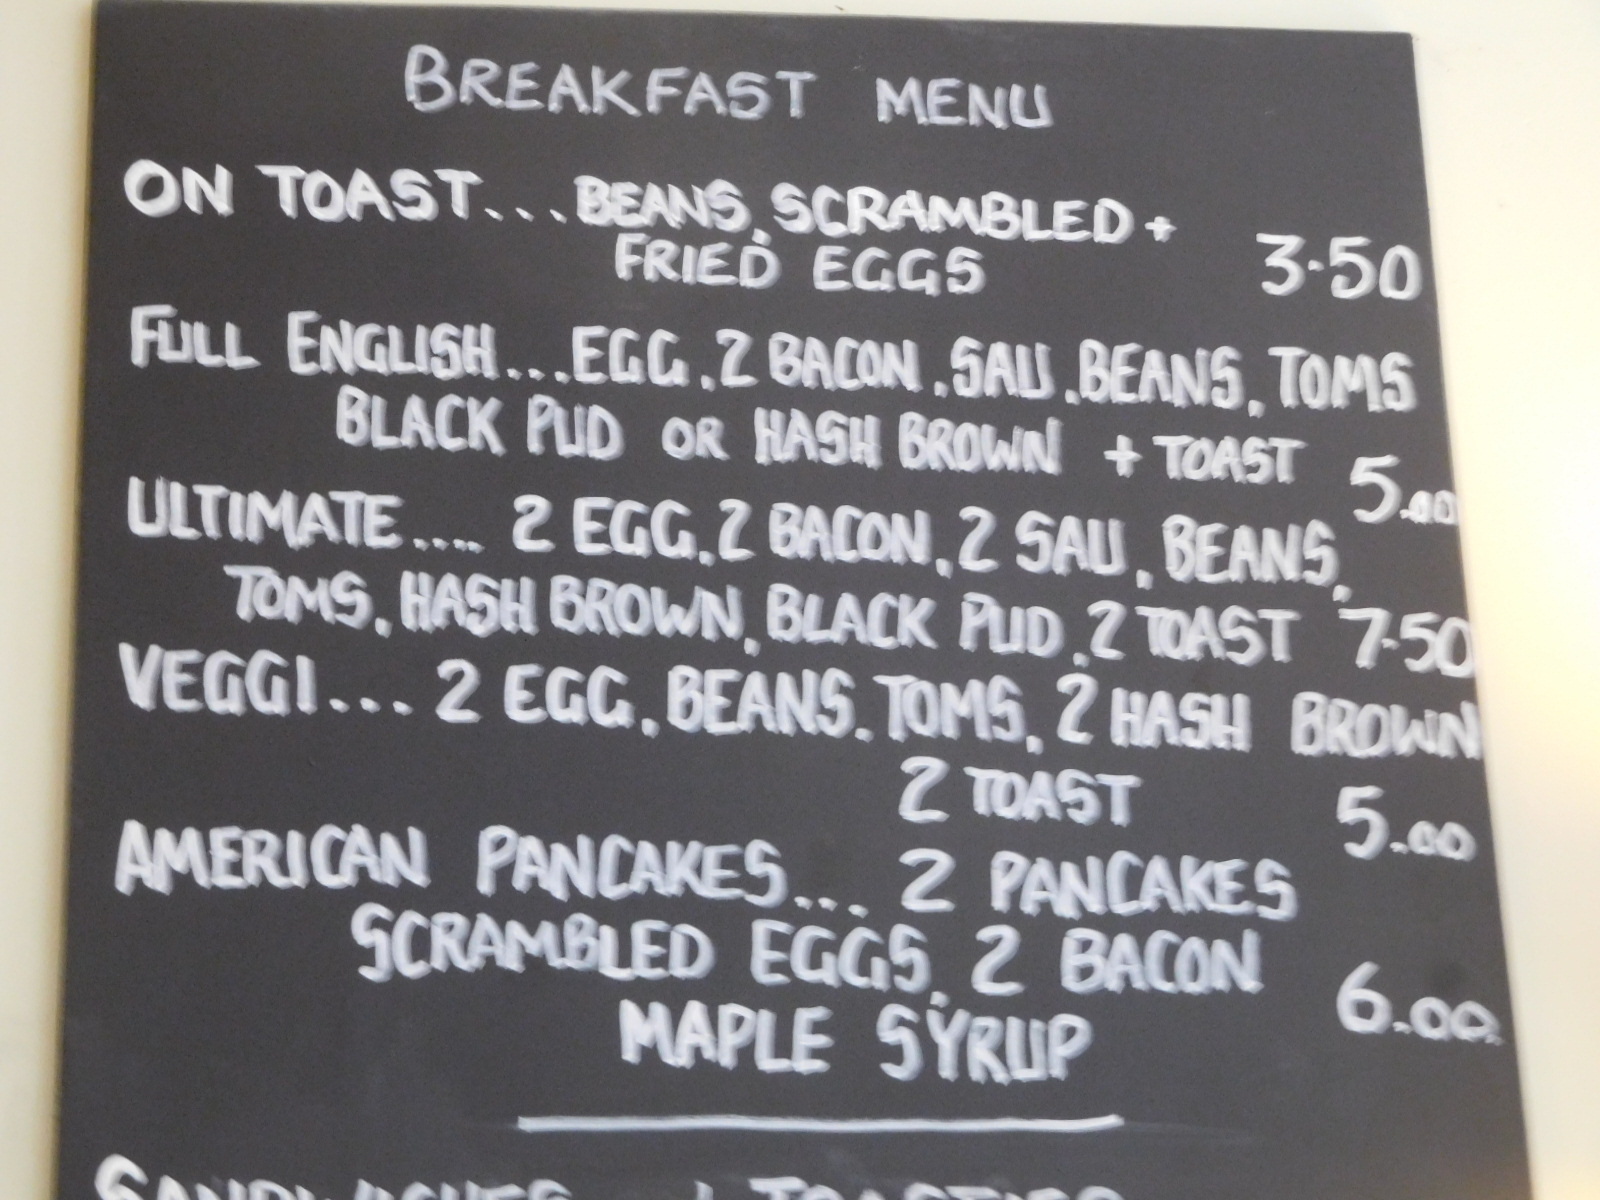 BREAKFAST MENU
ON TOAST...BEANS, SCRAMBLED +
FRIED EGGS 3.50
FULL ENGLISH...EGG, 2 BACON, SAU, BEANS, TOMS
BLACK PUD OR HASH BROWN + TOAST 5.00
ULTIMATE.... 2 EGG, 2 BACON, 2 SAU, BEANS,
TOMS, HASH BROWN, BLACK PUD, 2 TOAST 7.50
VEGGI... 2 EGG, BEANS, TOMS, 2 HASH BROWN
2 TOAST 5.00
AMERICAN PANCAKES... 2 PANCAKES
SCRAMBLED EGGS, 2 BACON
MAPLE SYRUP 6.00
SANDWICHES + TOASTIES